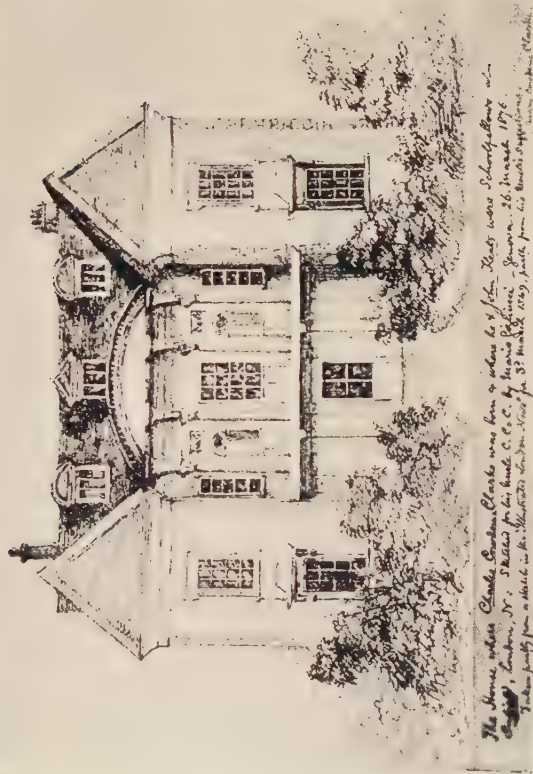 The House where Charles Cowden Clarke was born & where he & John Keats were Schoolfellows in
Enfield, London, N. Sketched for his Uncle C. C. C. by Mario Genoa. 26 March 1876
Taken partly from a sketch in the Illustrated London News for 3rd March 1849, partly from his Uncle's suggestions.
Mary Cowden Clarke.